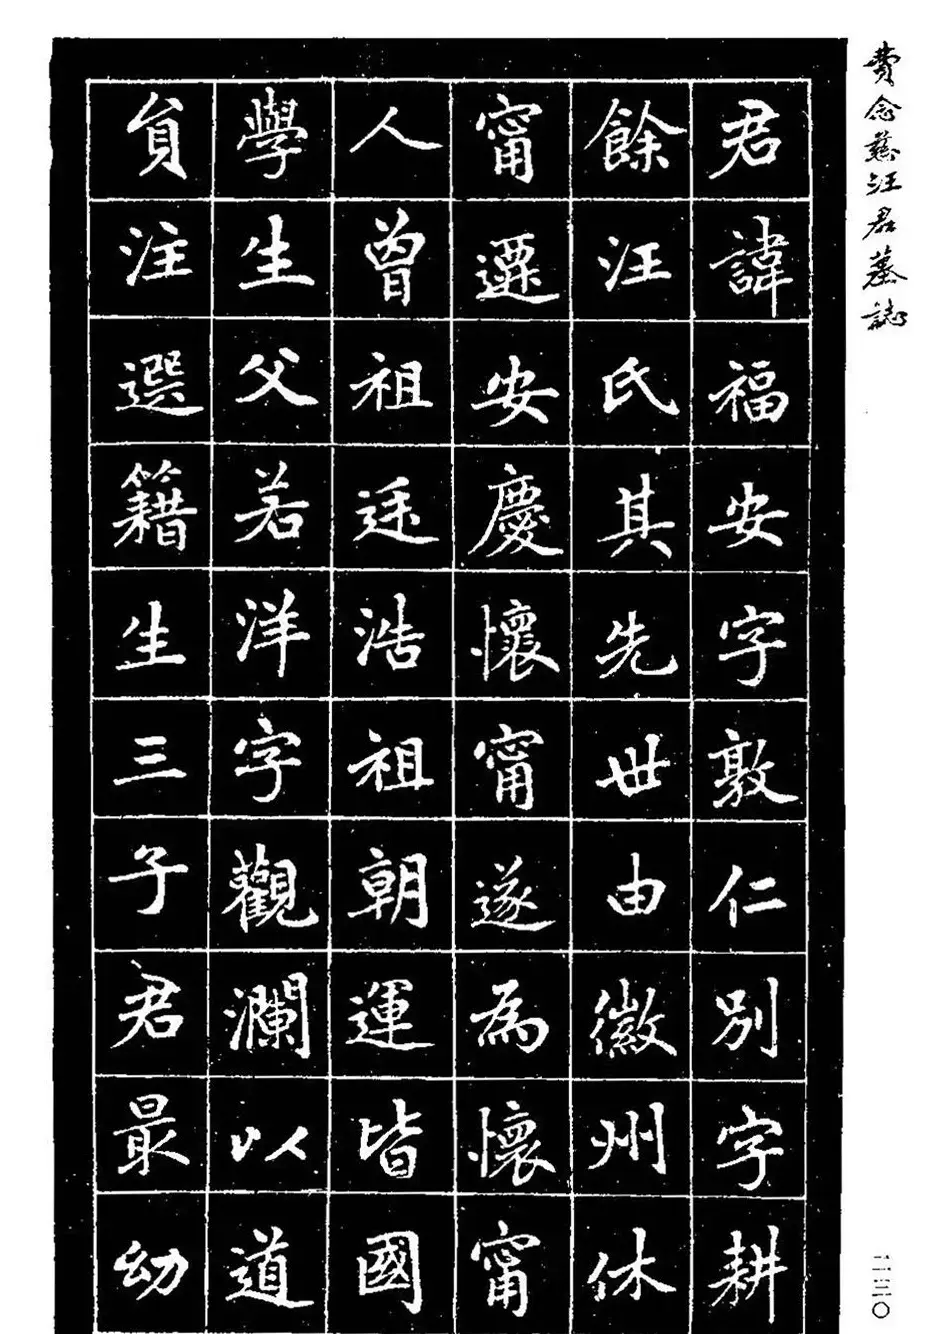 費念慈汪君墓誌
君諱福安字敦仁別字耕
餘汪氏其先世由徽州休
甯遷安慶懷甯遂為懷甯
人曾祖廷浩祖朝運皆國
學生父若洋字觀瀾以道
貟注選籍生三子君最幼
二三〇